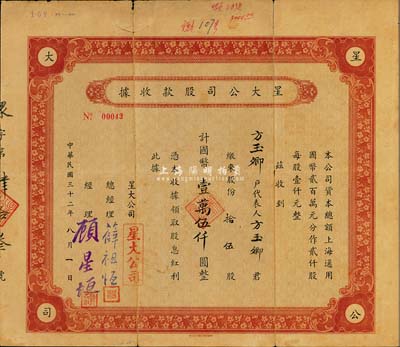 星
大
公
司
星大公司股款收據
№ 00043
本公司資本總額上海通用
國幣貳百萬元分作貳仟股
每股壹仟元整
茲收到
方玉卿 戶代表人 方玉卿 君
繳來股份 拾伍 股
計國幣 壹萬伍仟 圓整
憑此收據領取股息紅利
此據
星大公司
總經理 薛祖恒
經理 顧星垣
星大公司
中華民國三十二年八月一日